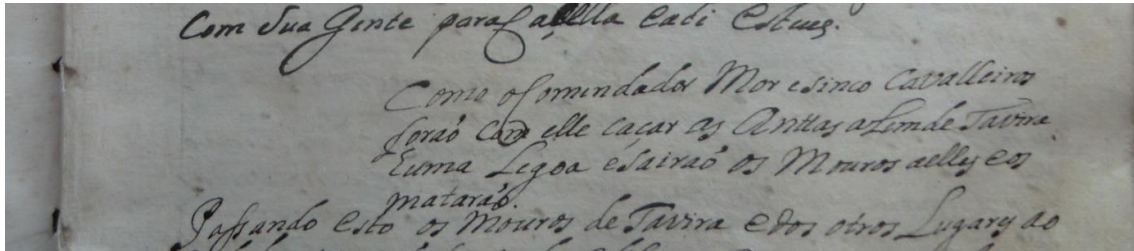 Com sua Gente para Caſſella e adi esteue.
Como o Comendador Mor e sinco Cavalleiros
foraõ com elle caçar as Anttas alem de Tavira
huma Legoa e sairaõ os Mouros a elles e os
mataraõ.
Paſsando esto os Mouros de Tavira e dos otros Lugares ao